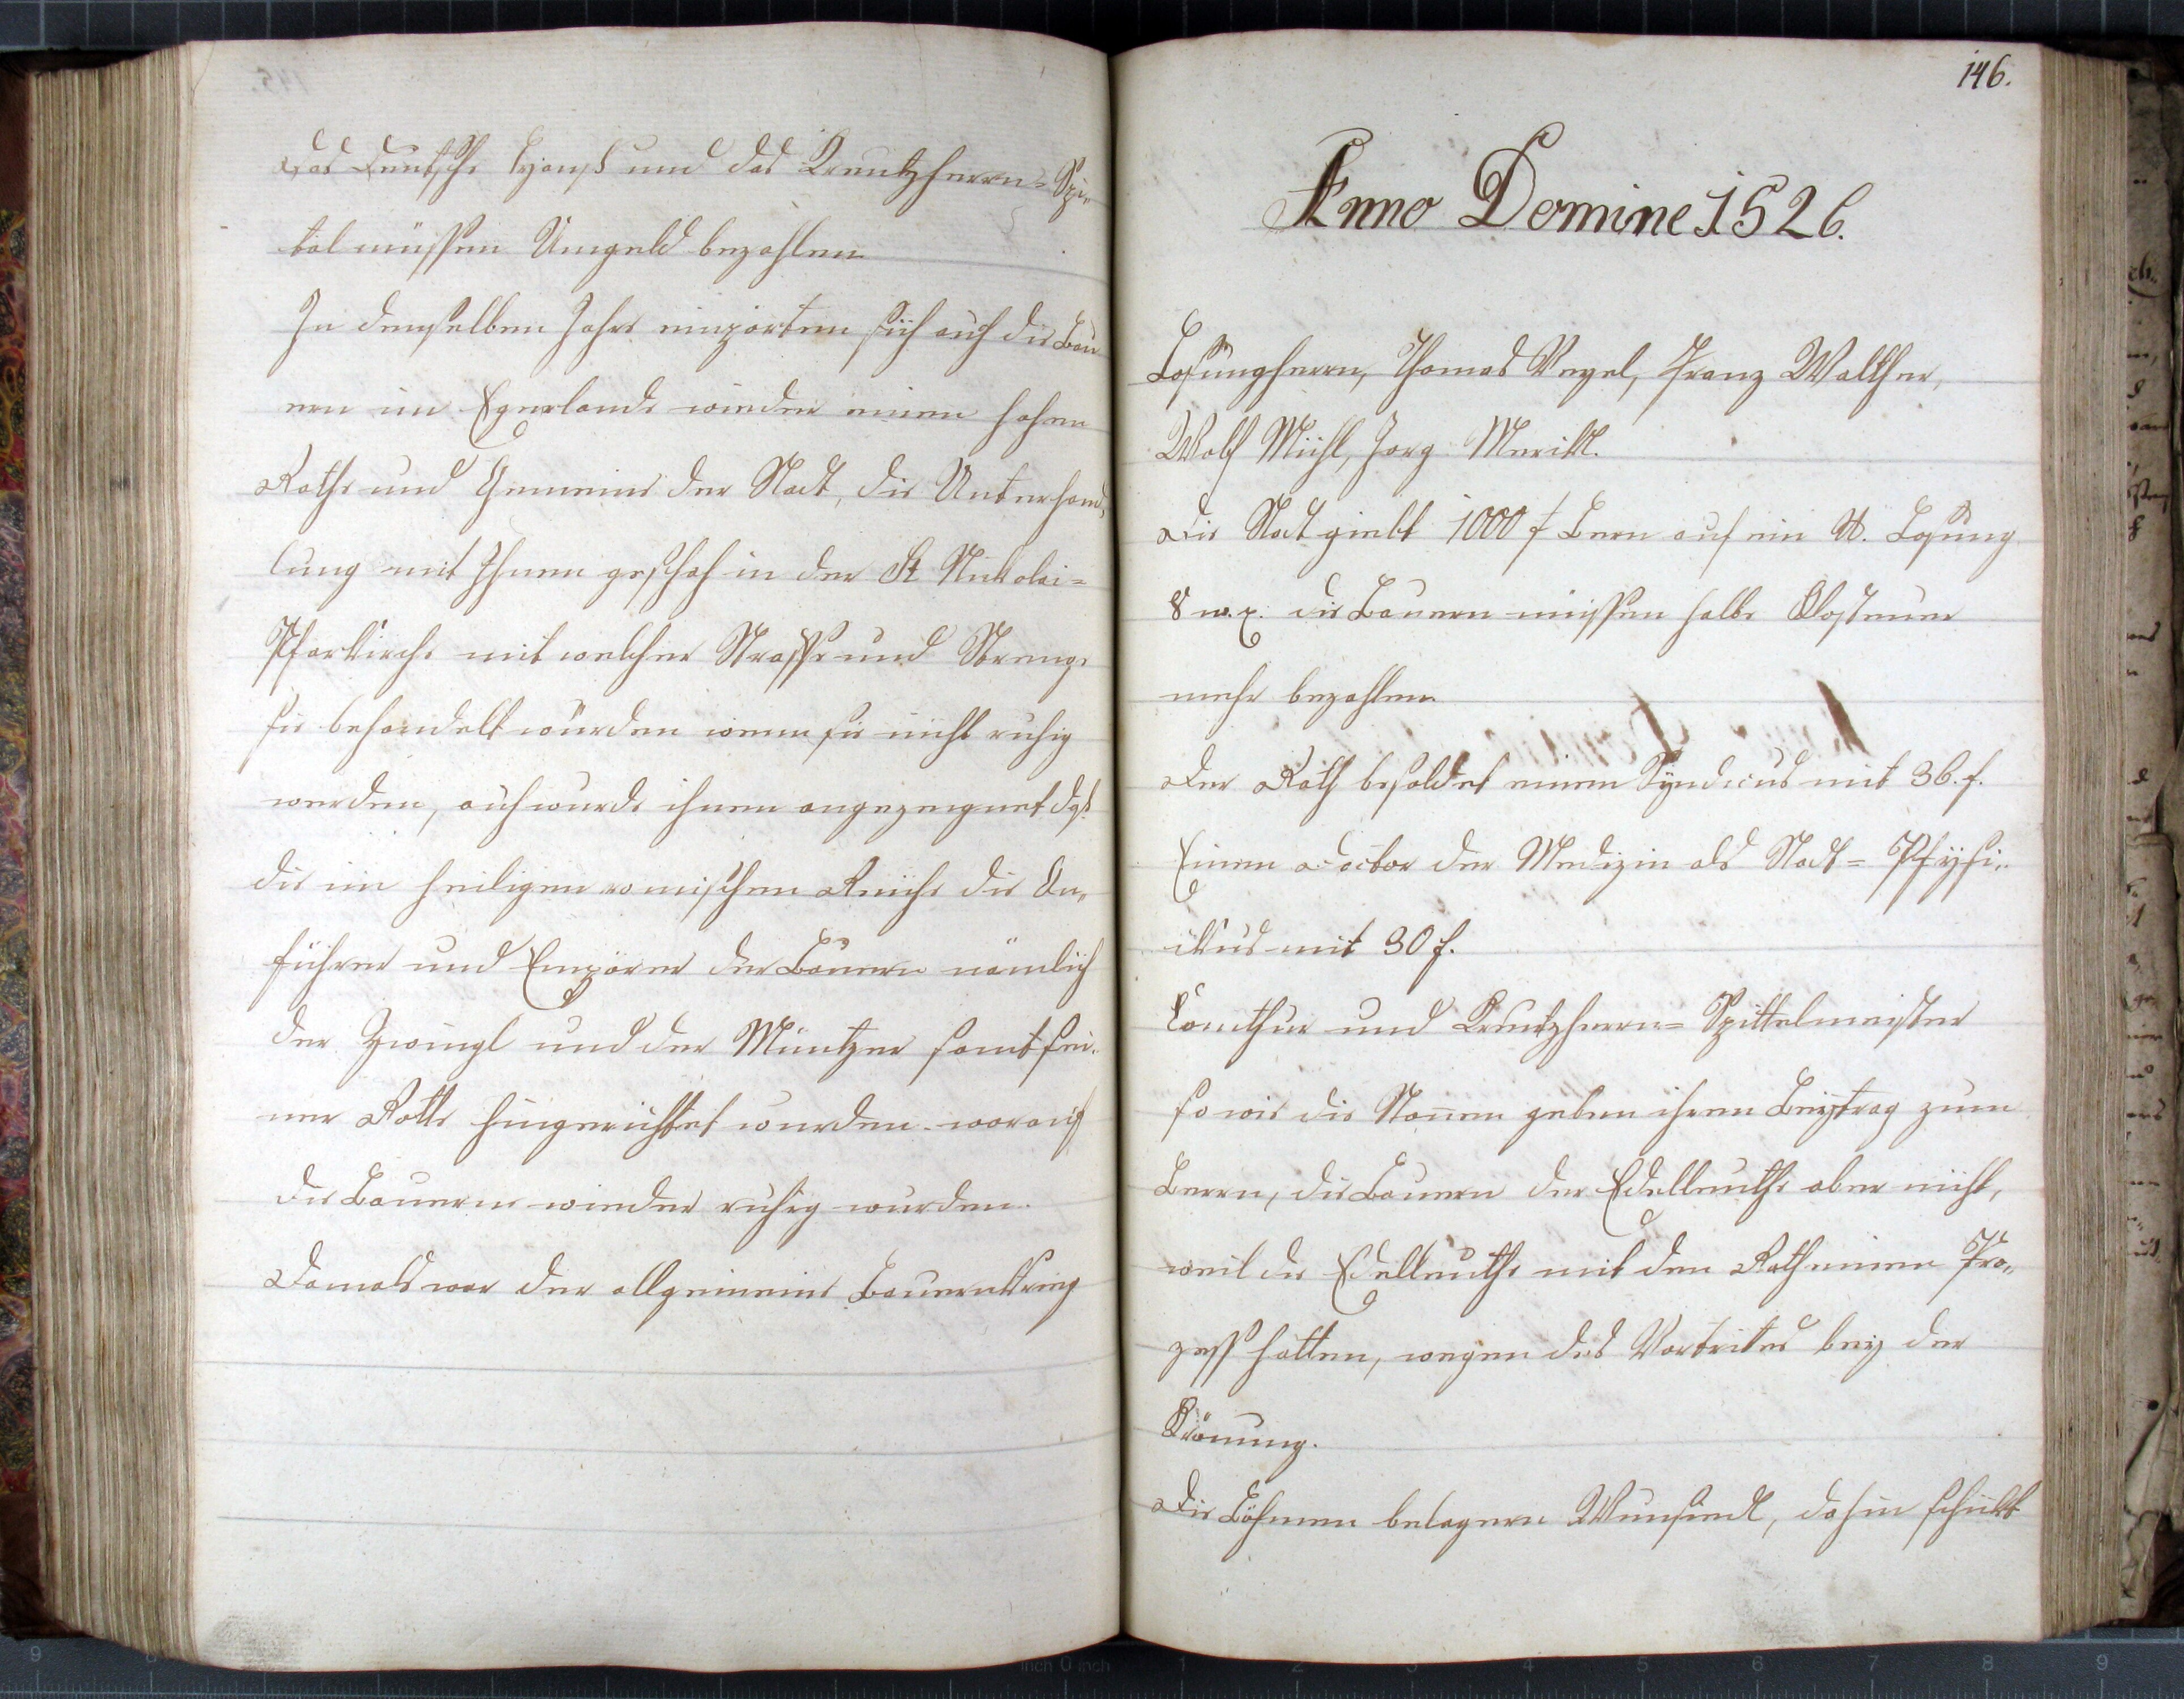 Das Deutsche Hauß und das Kreutzherrn=Spi„
tal müssen Umgeld bezahlen
In demselben Jahre empörten sich auch die Bau
ern im Egerlande wieder einen hohen
Rathe und Gemeine der Stadt, die Unterhand„
lung mit Ihnen geschah in der St Nikolai=
Pfarkirche mit welcher Straffe und Strenge
sie behandelt würden wenn sie nicht ruhig
werden, auch wurde ihnen angezeugnet daß
die im heiligen romischen Reiche die An„
führer und Empörer der Bauern nämlich
der Zwingl und der Müntzer samt sei„
ner Rotte hingerichtet wurden. worauf
die Bauern wieder ruhig wurden.
Damals war der allgemeine Bauernkrieg
146.
Anno Domine 1526.
Losungherrn, Thomas Vegel, Franz Walther,
Wolf Mühl, Jorg Merikl.
Die Stadt giebt 1000 f Bern auf ein Losung
8 w. x. die Bauern müssen halbe Klosteuer
mehr bezahlen.
Der Rath besoldet einen Syndicus mit 36. f.
Einen Doctor der Medizin als Stadt= Phÿsi„
ikus mit 30 f.
Comthur und Kreutzherrn= Spittelmeister
so wie die Nonnen geben ihren Beytrag zum
Bern, die Bauern der Edelleuthe aber nicht,
weil die Edelleuthe mit den Rath einen Pro„
zess hatten, wegen des Vortrites bey der
Krönung.
Die Böhmen belagern Wunsiedl, dahin schickt